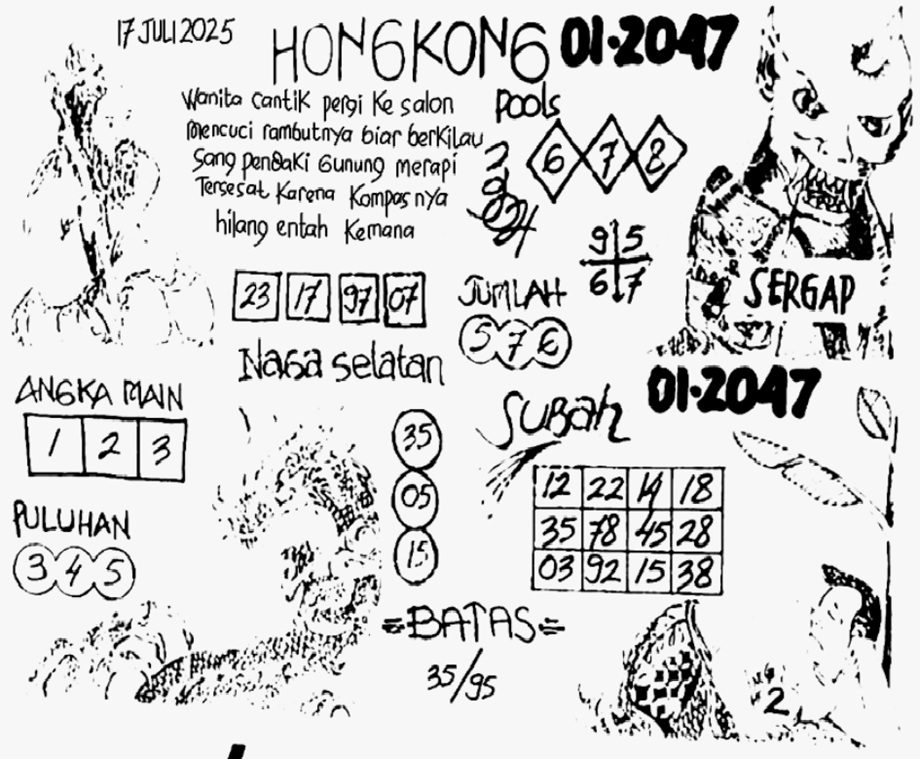 17 JULI 2025
HONGKONG 01·2047
Pools
Wanita cantik pergi ke salon
Mencuci rambutnya biar berkilau
Sang pendaki Gunung merapi
Tersesat Karena Kompas nya
hilang entah Kemana
6 7 8
9 5
6 7
23 17 97 07
JUMLAH
5 7 6
SERGAP
Naga selatan
ANGKA MAIN
1 2 3
35
05
15
SUBAH 01·2047
12 22 14 18
35 78 45 28
03 92 15 38
PULUHAN
3 4 5
=BATAS=
35/95
2